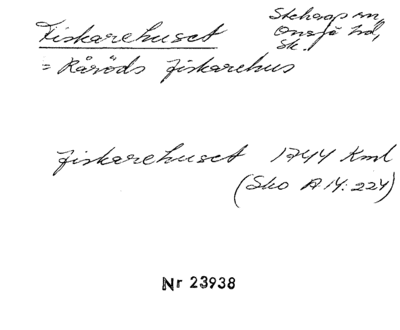 Fiskarehuset
Stehags sn,
Onsjö hd,
Sk.
= Råröds fiskarehus
fiskarehuset 1744 Kml
(Sko A 14:224)
Nr 23938